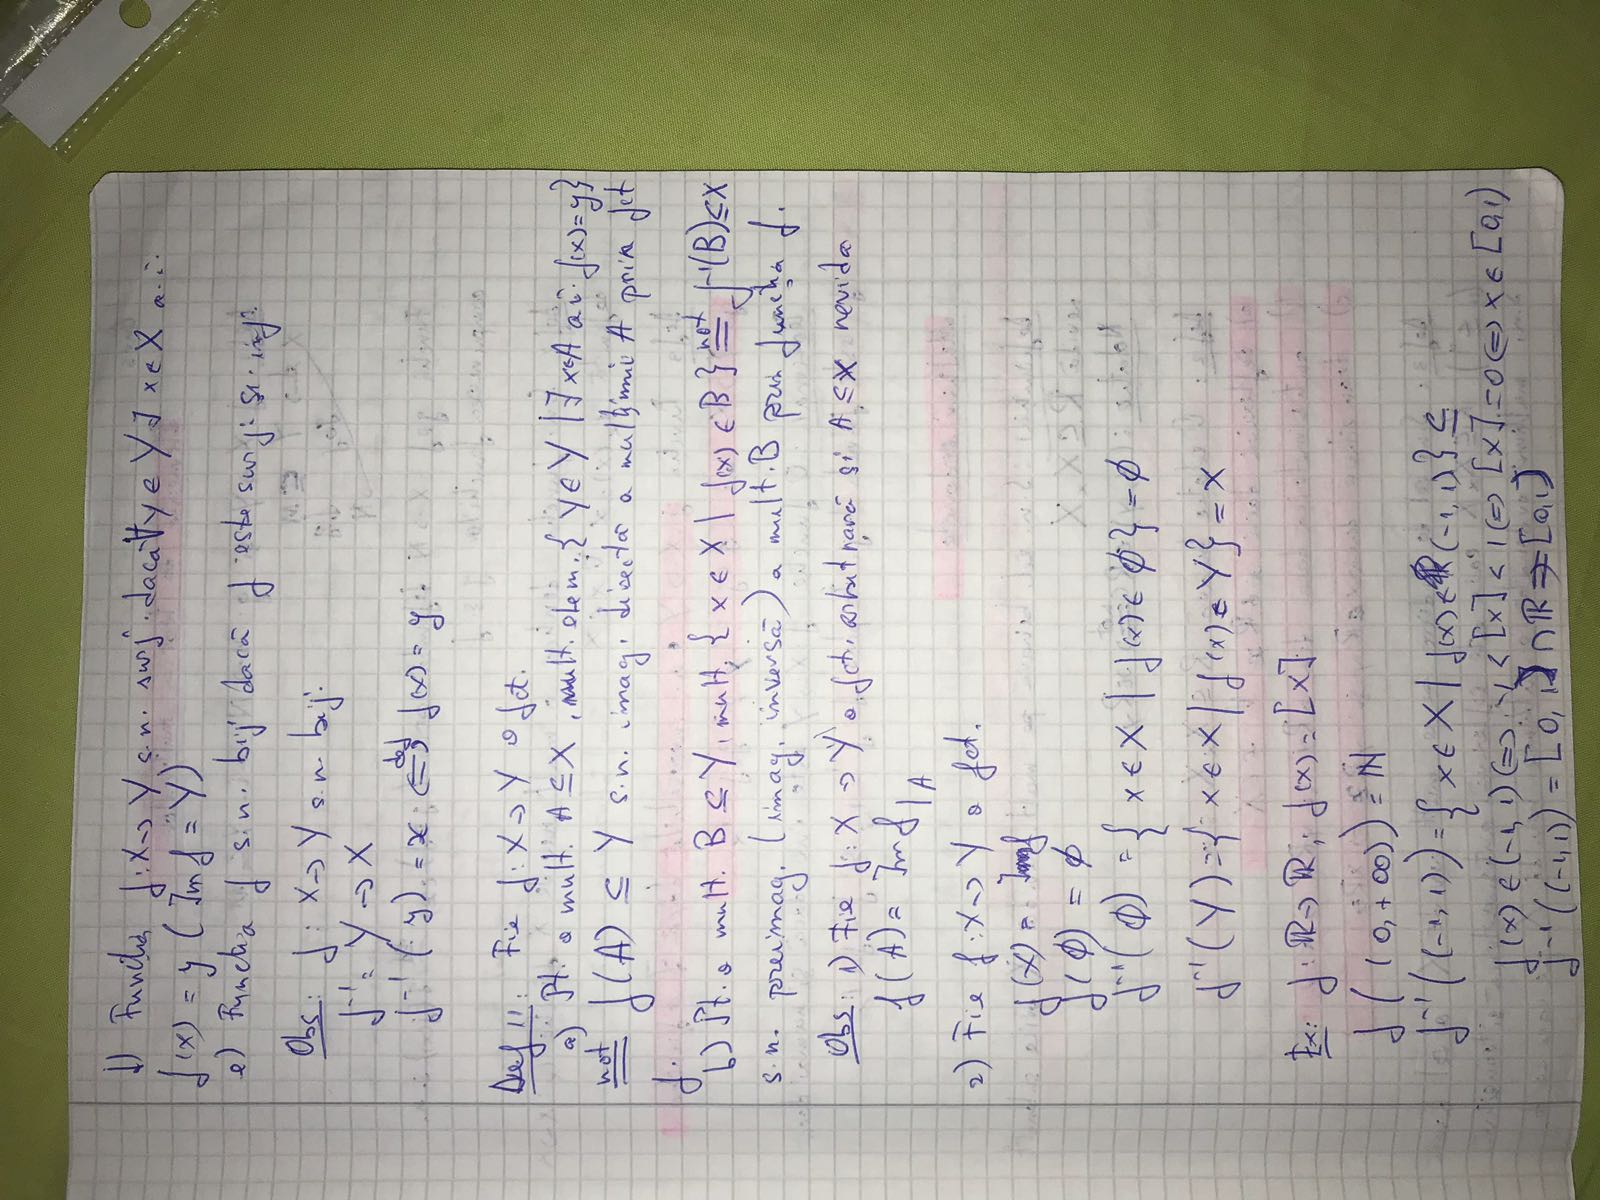 d) Funcția f: X → Y s.n. surj. dacă ∀ y ∈ Y ∃ x ∈ X a.î.
f(x) = y ( Im f = Y)
e) Funcția f s.n. bij. dacă f este surj. și inj.
Obs: f: X → Y s.n. bij.
f⁻¹: Y → X
f⁻¹(y) = x ⇔ def f(x) = y.
Def 11: Fie f: X → Y o fct.
a) Pt. o mult. A ⊆ X, mult. elem. { y ∈ Y | ∃ x ∈ A a.î. f(x) = y}
not f(A) ⊆ Y s.n. imag. directă a mulțimii A prin fct
f.
b) Pt. o mult. B ⊆ Y, mult. { x ∈ X | f(x) ∈ B } not f⁻¹(B) ⊆ X
s.n. preimag. (imag. inversă) a mult. B prin funcția f.
Obs: 1) Fie f: X → Y o fct. arbitrară și A ⊆ X nevidă
f(A) = Im f|A
2) Fie f: X → Y o fct.
f(X) = Imf
f(∅) = ∅
f⁻¹(∅) = { x ∈ X | f(x) ∈ ∅ } = ∅
f⁻¹(Y) = { x ∈ X | f(x) ∈ Y } = X
Ex: f: ℝ → ℝ, f(x) = [x]
f( (0, +∞)) = ℕ
f⁻¹( (-1, 1)) = { x ∈ X | f(x) ∈ (-1, 1)} ⊆
f(x) ∈ (-1, 1) ⇔ -1 < [x] < 1 ⇔ [x] = 0 ⇔ x ∈ [0,1)
f⁻¹((-1,1)) = [0, 1) ∩ ℝ ⇒ [0,1)